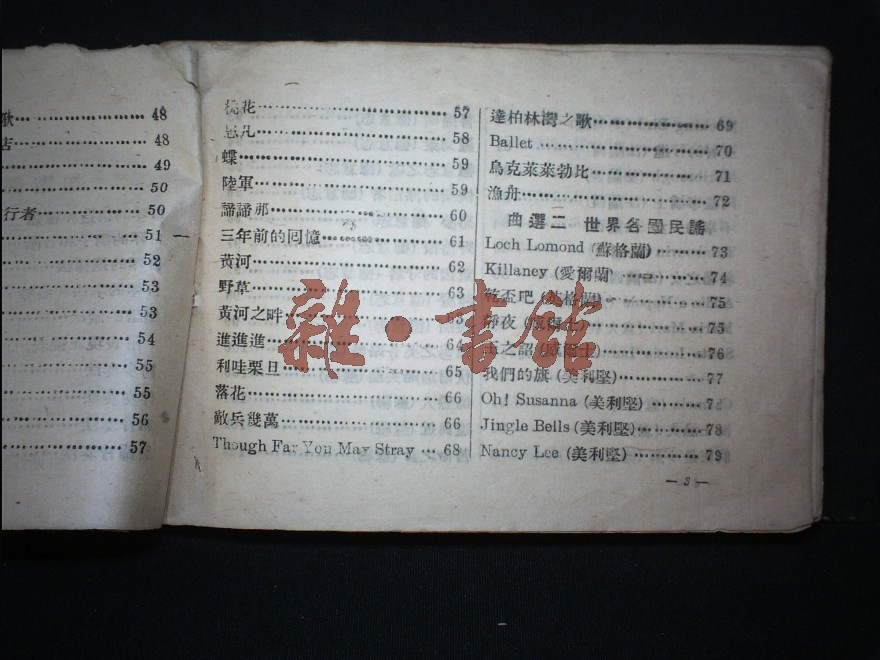 歌 48
店 48
49
50
行者 50
51
52
53
53
54
55
55
56
57
桃花 57
思凡 58
蝶 59
陸軍 59
諦諦那 60
三年前的囘憶 61
黃河 62
野草 63
黃河之畔 63
進進進 64
利哇栗旦 65
落花 66
敵兵幾萬 66
Though Far You May Stray 68
達柏林灣之歌 69
Ballet 70
烏克萊萊勃比 71
漁舟 72
曲選二 世界各國民謠
Loch Lomond (蘇格蘭) 73
Killaney (愛爾蘭) 74
乾盃吧 (英格蘭) 75
靜夜 (威爾士) 75
之詔 (威爾士) 76
我們的旗 (美利堅) 77
Oh! Susanna (美利堅) 7
Jingle Bells (美利堅) 78
Nancy Lee (美利堅) 79
— 3 —
雜·書館